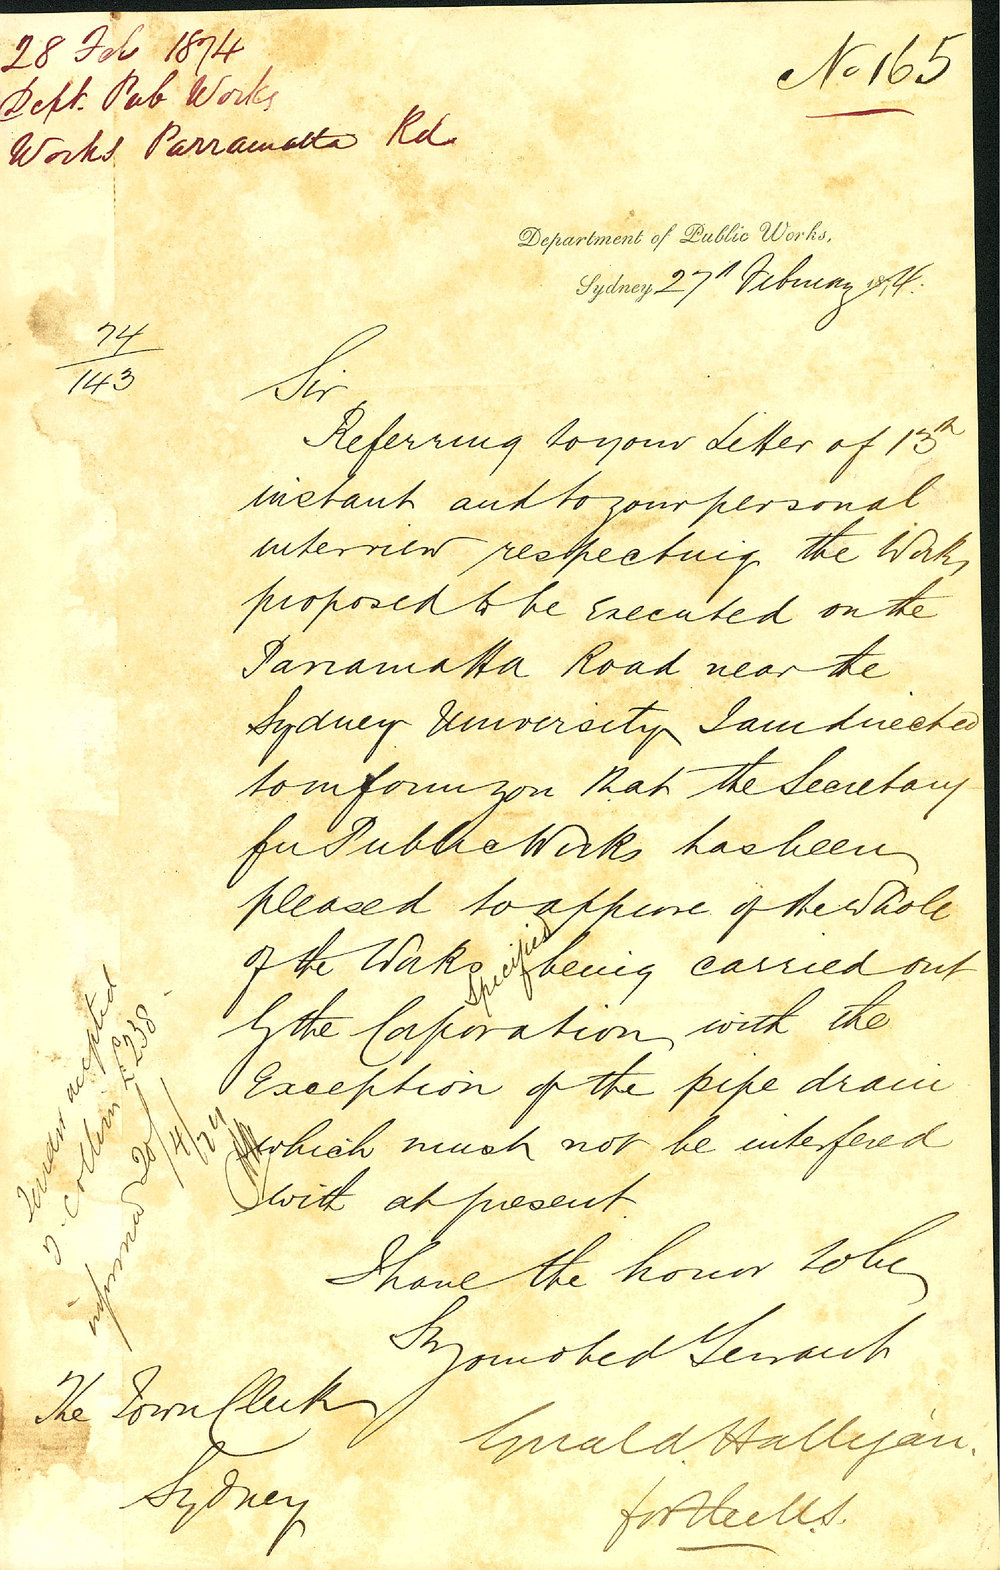 28 Feb 1874
Dept. Pub Works
Works Parramatta Rd.
No 165
Department of Public Works,
Sydney 27th February 1874.
74
143
Sir
Referring to your Letter of 13th
instant and to your personal
interview respecting the Works
proposed to be Executed on the
Parramatta Road near the
Sydney University I am directed
to inform you that the Secretary
for Public Works has been
pleased to approve of the Whole
of the Works specified being carried out
by the Corporation with the
Exception of the pipe drain
which must not be interfered
with at present.
I have the honor to be
Sir
Your obed Servant
Gerald Halligan.
for
The Town Clerk
Sydney
Tender accepted
Collins £238
informed 20/4/74